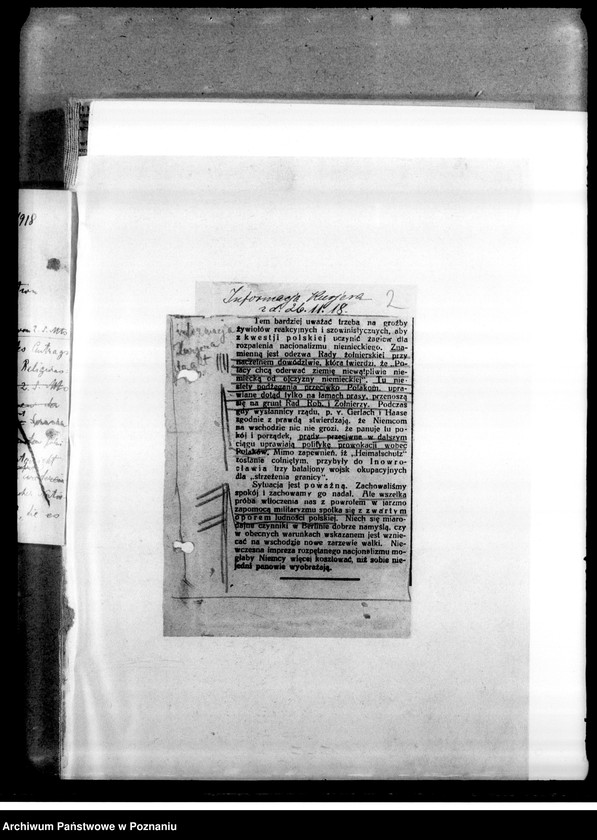 Informacja Kurjera 2
z d. 26. 11. 18.
Tem bardziej uważać trzeba na groźby
żywiołów reakcyjnych i szowinistycznych, aby
z kwestji polskiej uczynić zagiew dla
rozpalenia nacjonalizmu niemieckiego. Zna-
mienną jest odezwa Rady żołnierskiej przy
naczelnem dowództwie, która twierdzi, że „Po-
lacy chcą oderwać ziemię niewątpliwie nie-
miecką od ojczyzny niemieckiej". Tu nie-
stety podżegania przeciwko Polakom, upra-
wiane dotąd tylko na łamach prasy, przenoszą
się na grunt Rad Rob. i Żołnierzy. Podczas
gdy wysłannicy rządu, p. v. Gerlach i Haase
zgodnie z prawdą stwierdzają, że Niemcom
na wschodzie nic nie grozi, że panuje tu po-
kój i porządek, prądy przeciwne w dalszym
ciągu uprawiają politykę prowokacji wobec
Polaków. Mimo zapewnień, iż „Heimatschutz"
zostanie cofniętym, przybyły do Inowro-
cławia trzy bataljony wojsk okupacyjnych
dla „strzeżenia granicy".
Sytuacja jest poważną. Zachowaliśmy
spokój i zachowamy go nadal. Ale wszelka
próba wtłoczenia nas z powrotem w jarzmo
zapomocą militaryzmu spotka się z zwartym
oporem ludności polskiej. Niech się miaro-
dajne czynniki w Berlinie dobrze namyślą, czy
w obecnych warunkach wskazanem jest wznie-
cać na wschodzie nowe zarzewie walki. Nie-
wczesna impreza rozpętanego nacjonalizmu mo-
głaby Niemcy więcej kosztować, niż sobie nie-
jedni panowie wyobrażają.
1918
Archiwum Państwowe w Poznaniu